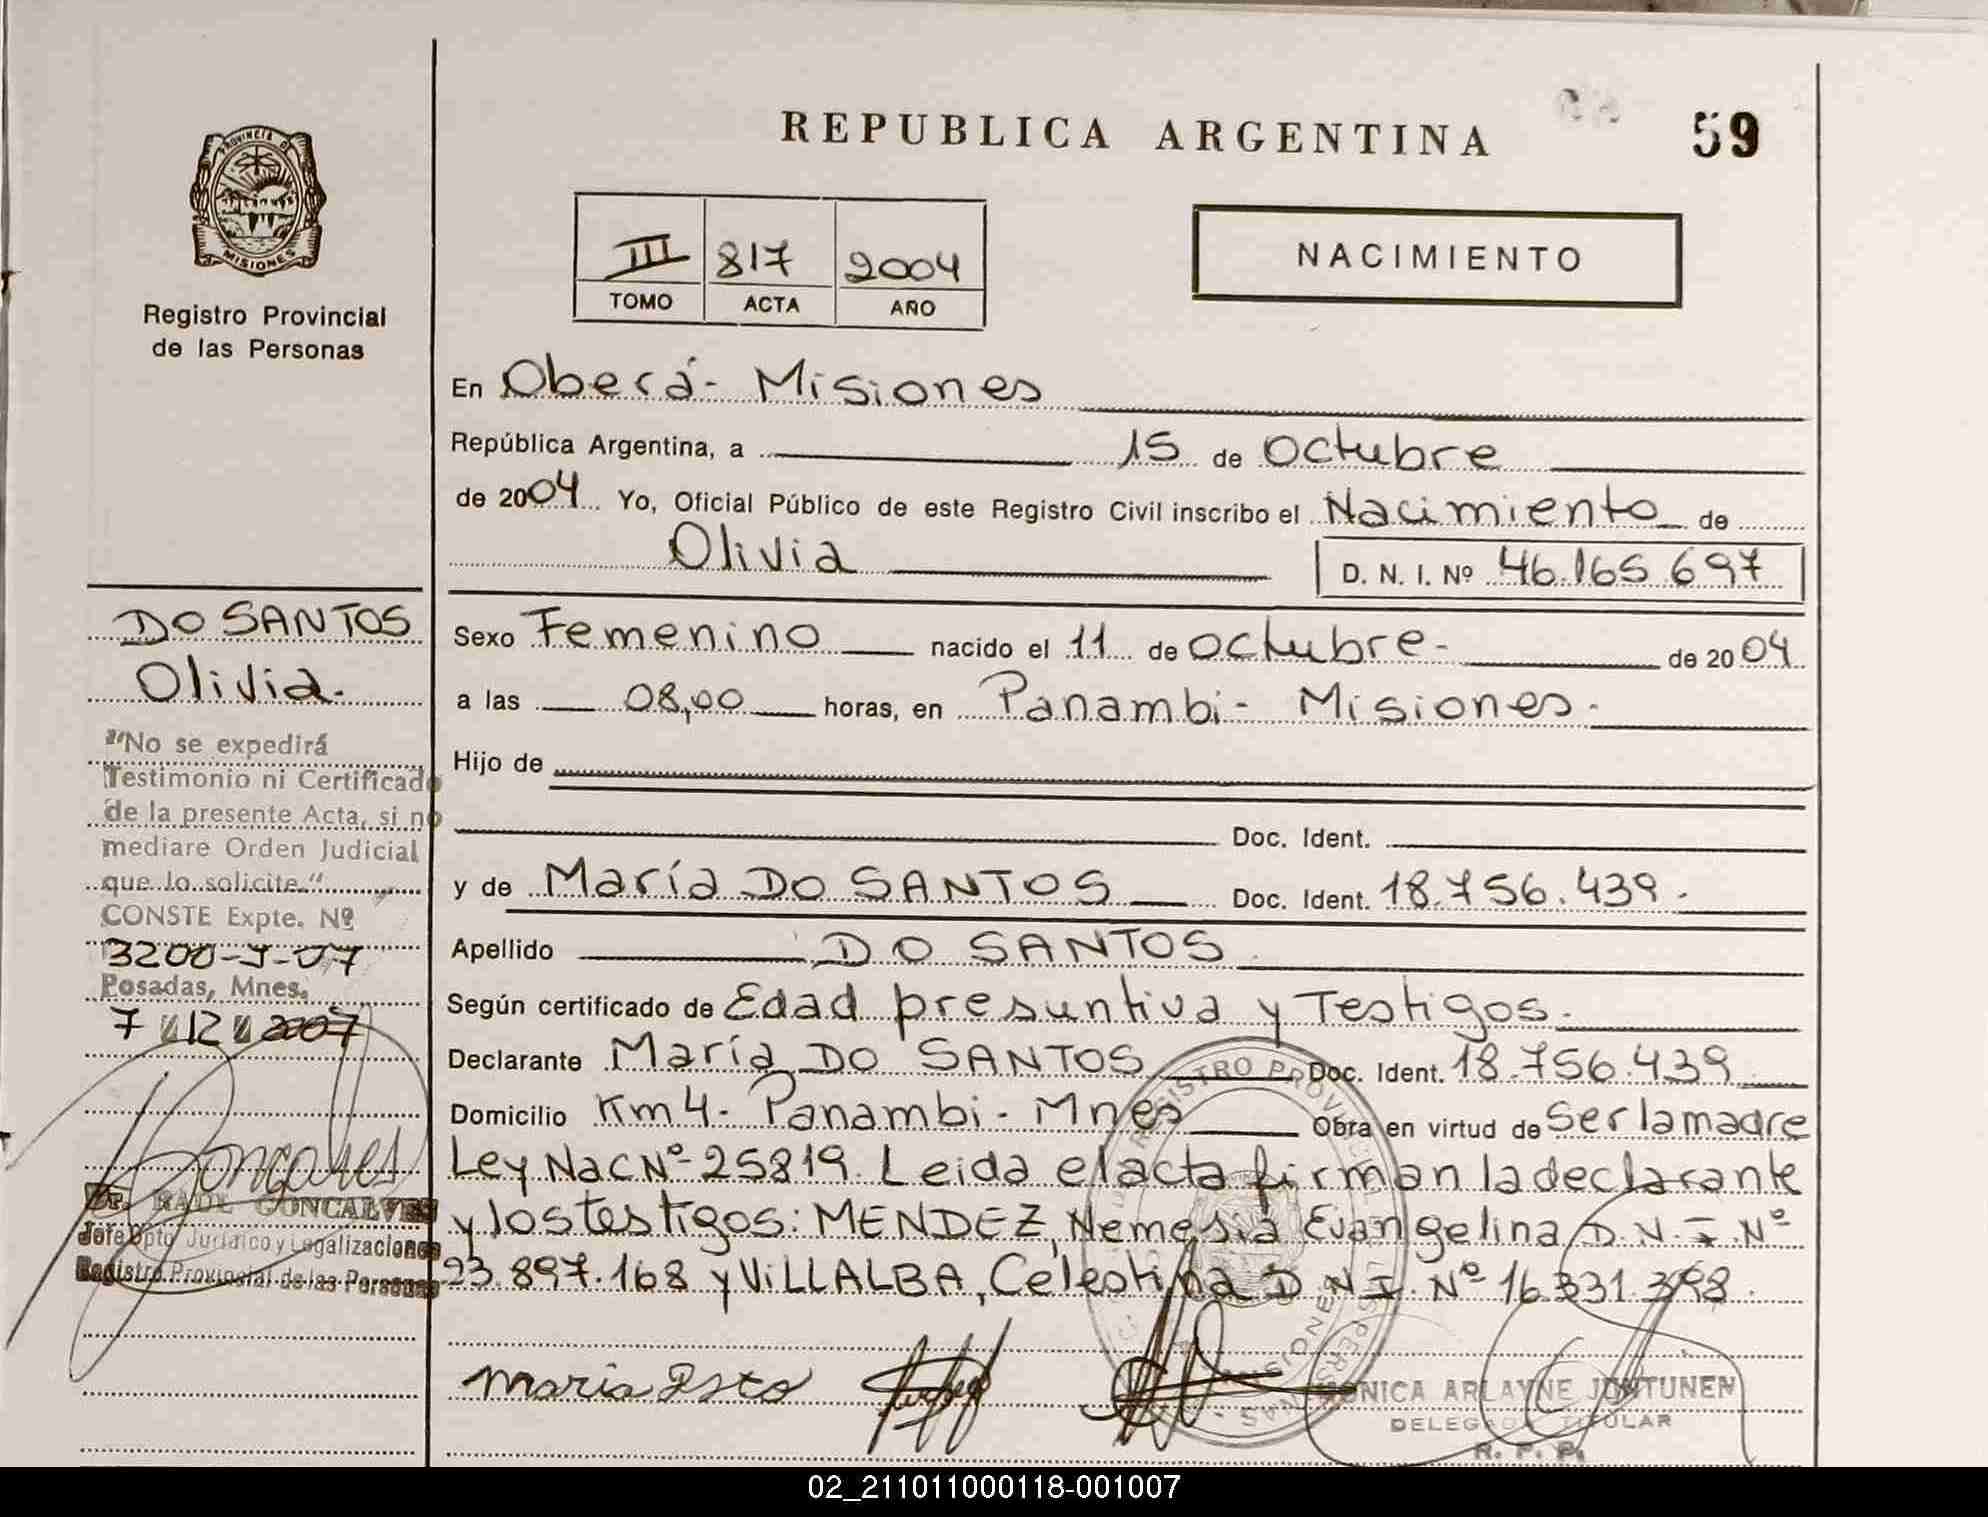 REPUBLICA ARGENTINA
59
PROVINCIA DE
MISIONES
Registro Provincial
de las Personas
III 817 2004
TOMO ACTA AÑO
NACIMIENTO
En Oberá - Misiones
República Argentina, a 15 de Octubre
de 2004 Yo, Oficial Público de este Registro Civil inscribo el Nacimiento de
Olivia D. N. I. Nº 46.165.697
Sexo Femenino nacido el 11 de octubre - de 2004
a las 08,00 horas, en Panambi - Misiones -
Hijo de
Doc. Ident.
y de María DO SANTOS Doc. Ident. 18.756.439.
Apellido DO SANTOS
Según certificado de Edad presuntiva y Testigos.
Declarante María DO SANTOS Doc. Ident. 18.756.439
Domicilio Km 4 - Panambi - Mnes Obra en virtud de Ser la madre
Ley Nac Nº 25819. Leida el acta firman la declarante
y los testigos: MENDEZ, Nemesia Evangelina D.N.I. Nº
23.897.168 y VILLALBA, Celestina D.N.I. Nº 16.331.398.
DO SANTOS
Olivia.
"No se expedirá
Testimonio ni Certificado
de la presente Acta, si no
mediare Orden Judicial
que lo solicite."
CONSTE Expte. Nº
3200-J-07
Posadas, Mnes.
7 12 2007
Goncalves
Dr. RAUL GONCALVES
Jefe Dpto Jurídico y Legalizaciones
Registro Provincial de las Personas
MONICA ARLAYNE JUNTUNEN
DELEGADA TITULAR
R. P. P.
02_211011000118-001007